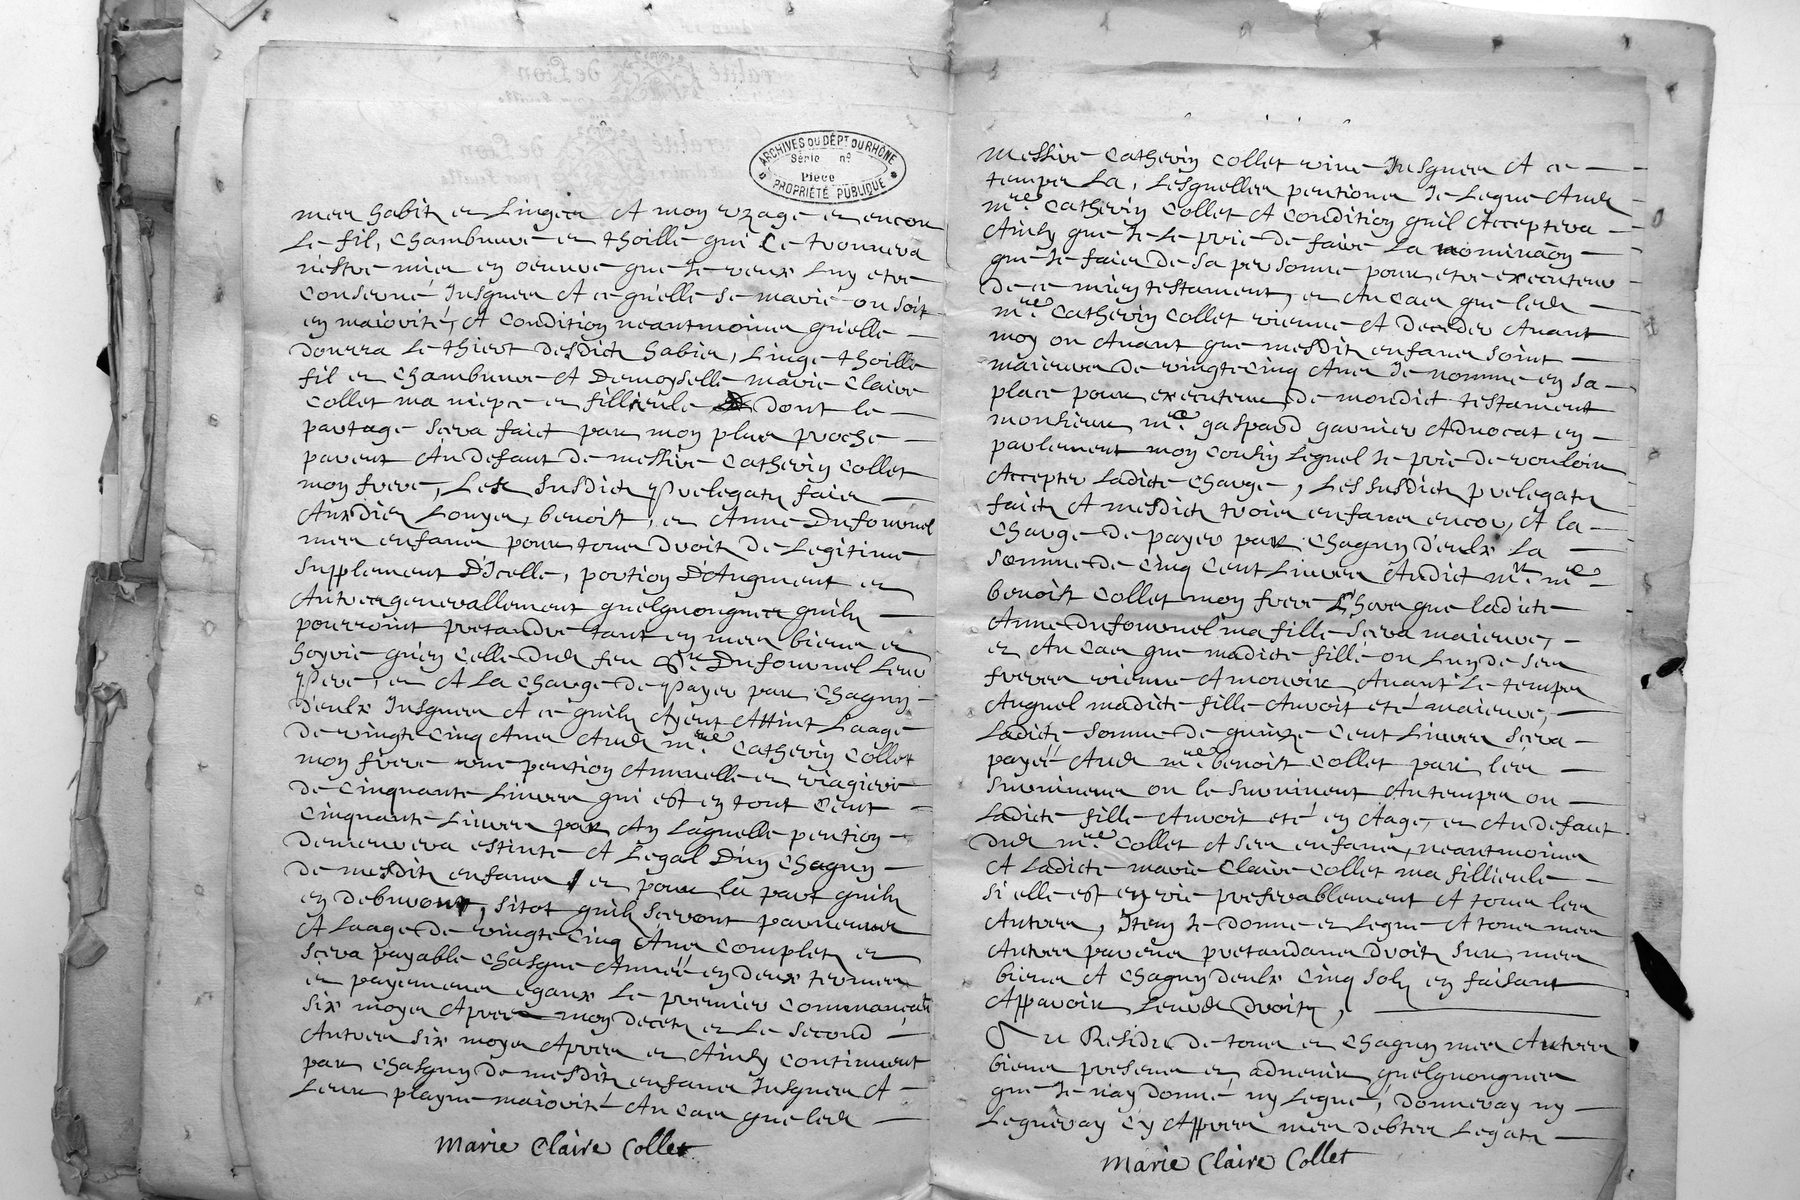 ARCHIVES DU DÉPT DU RHÔNE
Série nº
Pièce
PROPRIÉTÉ PUBLIQUE
mes habits et linges A mon uzage et encor
Le fil, chambvre et thoille qui Ce trouvera
n'estre mise en oeuvre que Je veux Luy etre
Conservé Jusques A ce qu'elle se marie ou soit
en maiorité, A Condition neantmoins qu'elle
donrra le thiers desdits habits, Linge thoille
fil et Chambvre A Demoyselle marie Claire
Collet ma niepce et fillieule dont le
partage sera faict par mon plus proche
parent Au defaut de messire Catherin Collet
mon frere, Les susdits prelegats fais
Auxdits Louys, benoist, et Anne Dufournel
mes enfans pour tous droits de Legitime
supplement D'Icelle, portion D'Augment et
Autres generallement quelquonques quils
pourroint pretandre tant en mes biens et
hoyrie qu'en Celle dud feu Sr Dufournel Leur
Pere, et A La Charge de Payer par Chaqun
d'eulx Jusques A ce quils Ayent Attint L'aage
de vingt Cinq Ans Aud mre Catherin Collet
mon frere une pention Annuelle et viagiere
de Cinquante Livres qui est en tout Cent
Cinquante Livres par An Laquelle pention
demeurera estinte A L'egal D'un Chaqun
de mesdits enfans et pour la part quils
en debvront, sitot quils seront parvenus
A L'aage de vingt Cinq Ans Complets et
sera payable Chasque Année en deux termes
et payemens egaux Le premier Commançant
six moys Apres mon deceds et Le second
Autres six moys Apres et Ainsy Continuent
par Chasqun de mesdits enfans Jusques A
Leur playne maiorité Au Cas que led
Marie Claire Collet
Messire Catherin Collet vive Jusques A ce
temps La, Lesquelles pentions Je Legue Aud
mre Catherin Collet A Condition qu'il Acceptera
Ainsy que Je Le prie de faire La nomination
que Je fais de sa personne pour etre executeur
de ce mien testament, et Au Cas que led
mre Catherin Collet vienne A deceder Avant
moy ou Avant que mesdits enfans soint
maieurs de vingt Cinq Ans Je nomme en sa
place pour executeur de mondict testament
monsieur mre gaspard garnier Advocat en
parlement mon Cousin Lequel Je prie de vouloir
Accepter Ladicte Charge, Les susdits prelegats
faicts A mesdicts trois enfans encor, A la
Charge de payer par Chaqun d'eulx La
somme de Cinq Cent Livres Audict mre
benoist Collet mon frere Lhors que ladicte
Anne Dufournel ma fille sera maieure,
et Au Cas que madicte fille ou L'un de ses
freres vienne A mourir Avant Le temps
Auquel madicte fille Auroit eté maieure,
Ladicte somme de quinze Cent Livres sera
payée Aud mre benoist Collet par les
survivens ou le survivent Au temps ou
Ladicte fille Auroit eté en Aage, et Au defaut
dud mre Collet A ses enfans, neantmoins
A Ladicte marie Claire Collet ma fillieule
si elle est en vie preferablement A tous les
Autres, Item Je donne et Legue A tous mes
Autres parens pretandans droits sur mes
biens A Chaqun d'eulx Cinq sols en faisant
Apparoir Leursd droits,
Au Residu de tous et Chaquns mes Autres
biens presens et advenir quelquonques
que Je n'ay donné ny Legué, donneray ny
Legueray Cy Apres mes debtes Legats
Marie Claire Collet